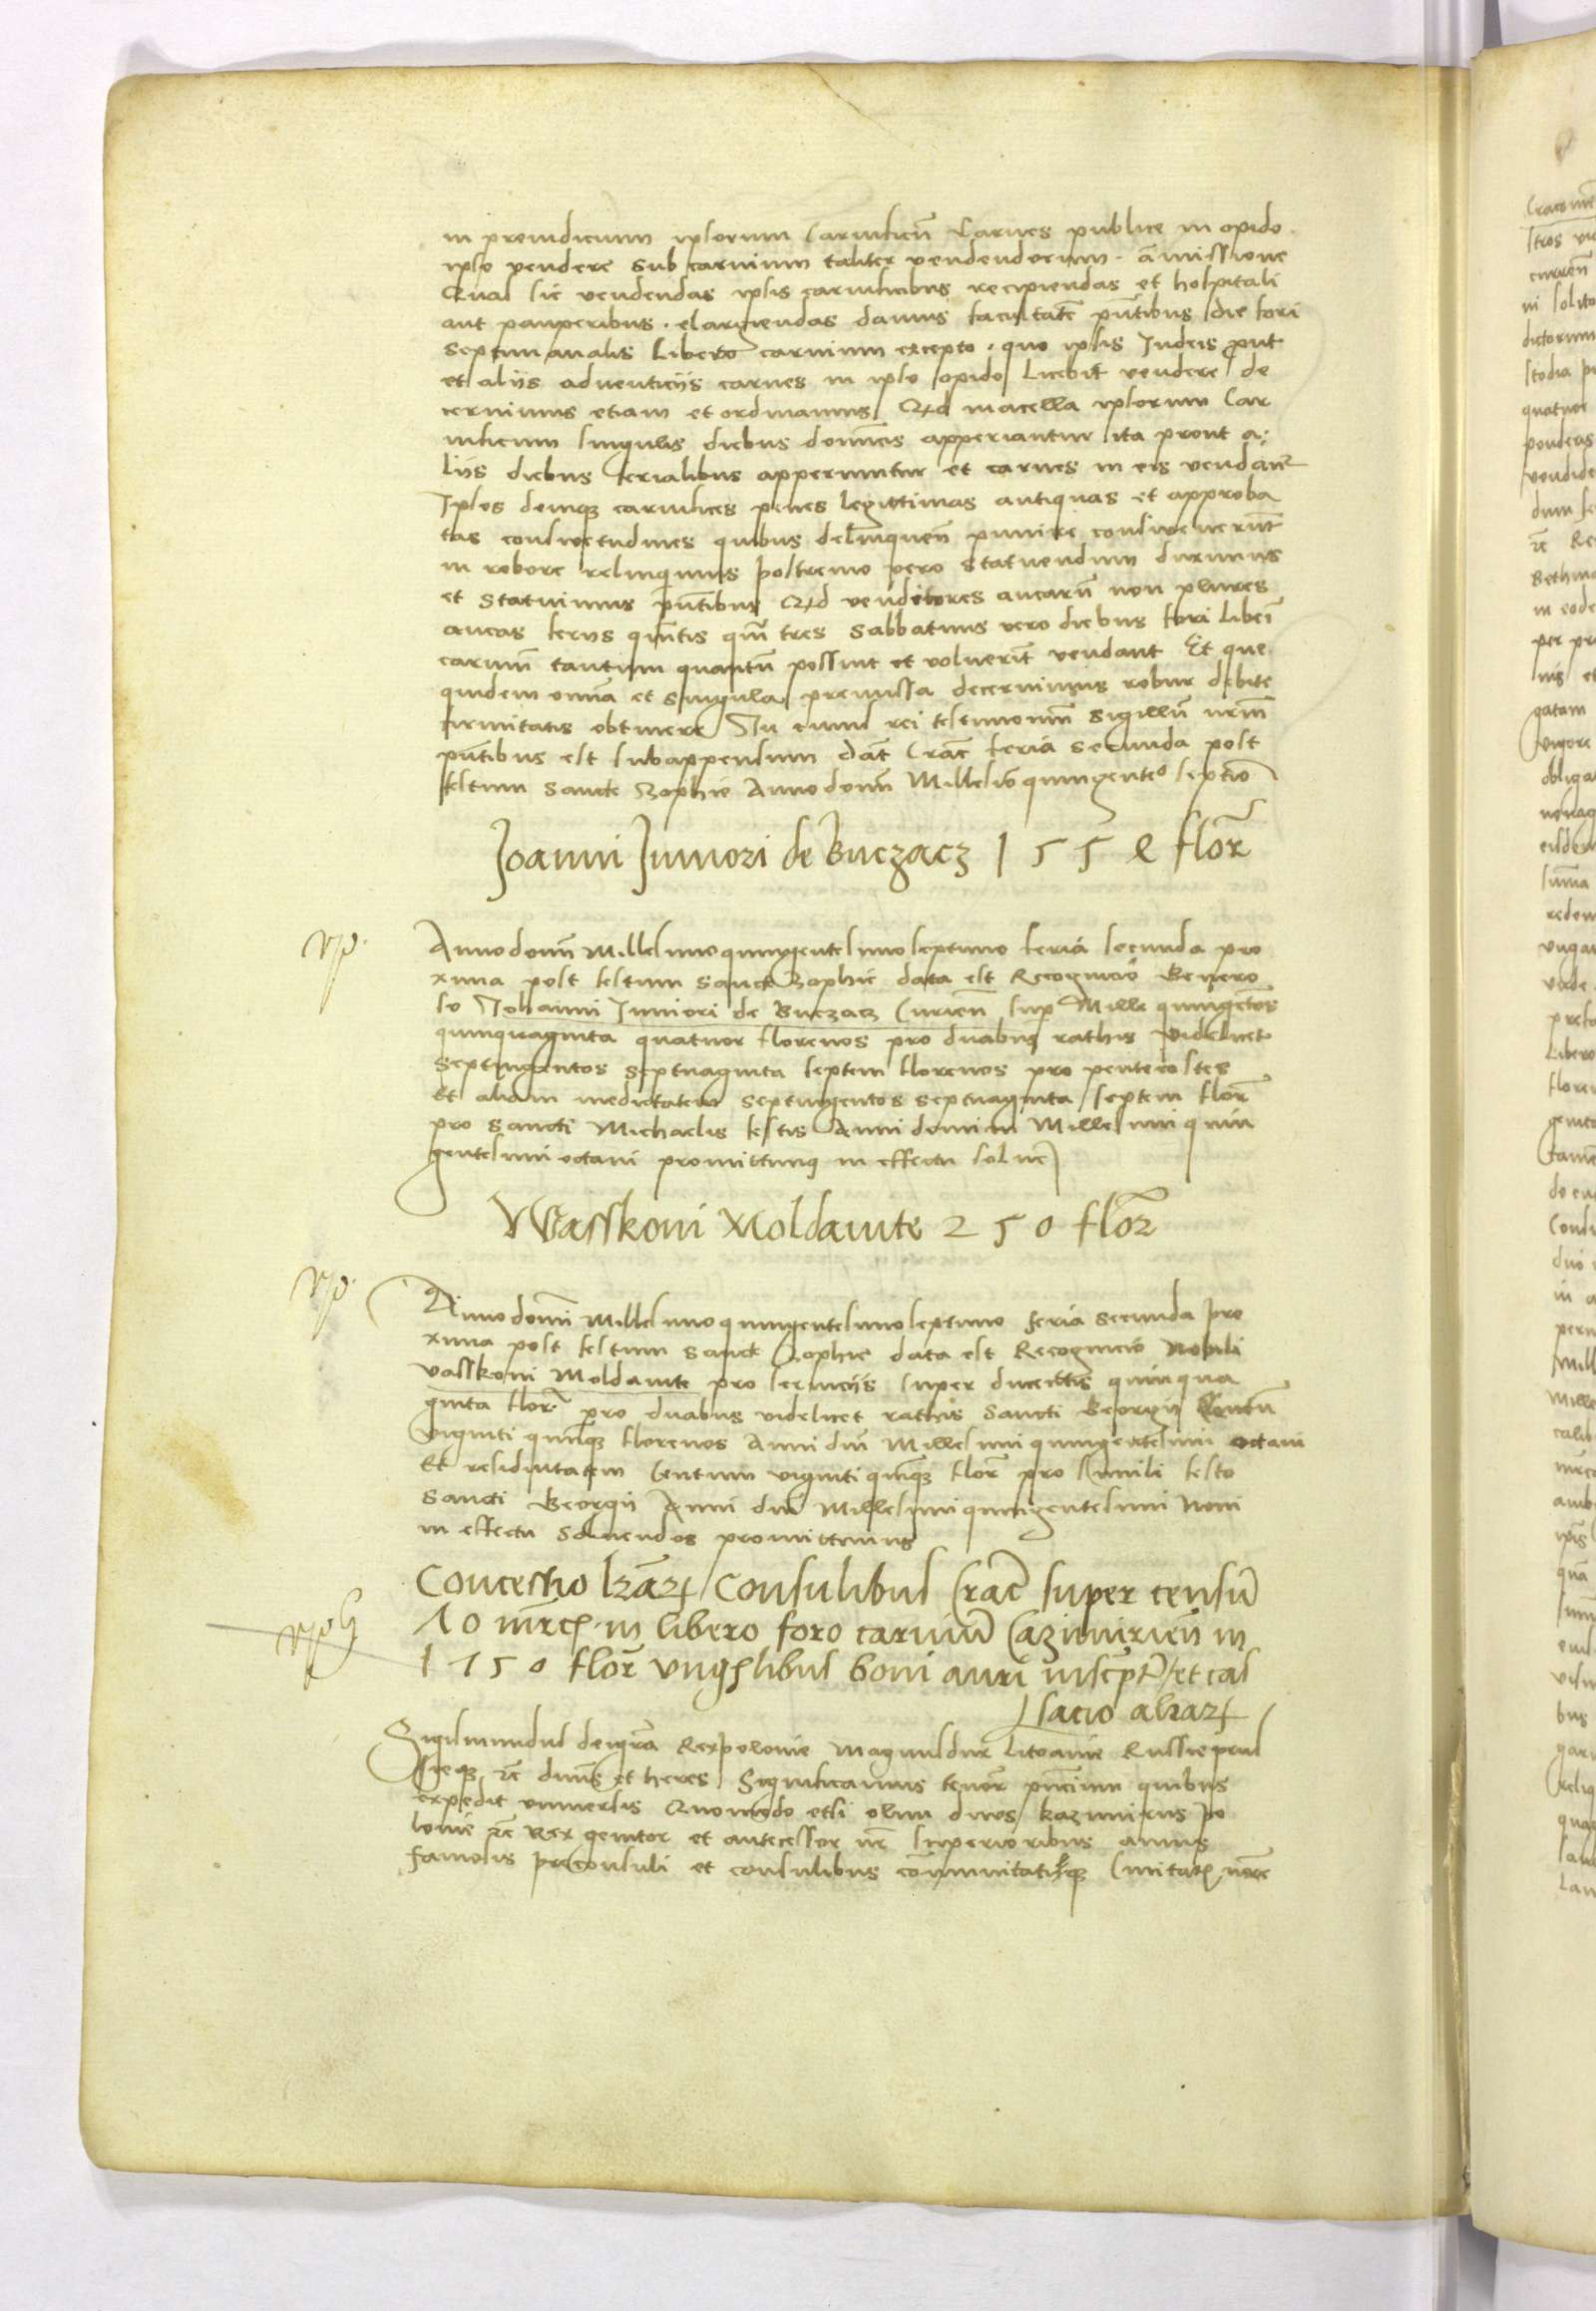 in preiudicium ipsorum Carnificũ Carnes publice in opido
ipso vendere sub carnium taliter vendendarum amissione
Quas sic vendendas ipsis carnificibus recipiendas et hospitali
aut pauperibus elargiendas damus facultatẽ pñtibus die fori
Septimanalis Libero carnium excepto quo ipsis Iudeis prout
et aliis adventiciis carnes in ipso opido Licebit vendere de
cernimus etiam et ordinamus Qd macella ipsorum Car
nificum singulis diebus dominicis apperiantur ita prout a
liis diebus ferialibus apperiuntur et carnes in eis vendãtr
Ipsos denique carnifices penes legittimas antiquas et approba
tas consuetudines quibus delinquen̄ punire consueuerũt
in robore relinquimus postremo vero statuendum duximus
et statuimus pñtibus Qd venditores aucarũ non plures
aucas feriis quintis qm̃ tres Sabbatinis vero diebus fori liberi
carniũ tantum quantũ possint et voluerint vendant Et que
quidem omnia et singula premissa decernimus robur debite
firmitatis obtinere In cuius rei testimoniũ Sigillũ nrm̃
pñtibus est subappensum Dat̃ Crac̃ feria secunda post
festum Sancte Zophie Anno domĩ Millesimo quingentesimo septimo
Joanni Juniori de Buczacz 1554 flor̃
Anno domĩ Millesimo quingentesimo septimo feria secunda pro
xima post festum Sancte Zophie data est Recognicio Genero
so Johanni Juniori de Buczacz Curien̄ super Mille quingẽtos
quinquaginta quatuor florenos pro duabus rathis videlicet
Septingentos septuaginta septem florenos pro penthecostes
Et aliam medietatem septingentos septuaginta septem flor̃
pro Sancti Michaelis festis Anni domini Millesimi quin
gentesimi octaui promittimus in effectu soluẽ
Wasskoni Moldauite 250 flor̃
Anno domĩ Millesimo quingentesimo septimo feria secunda pro
xima post festum Sancte Zophie data est Recognicio Nobili
Vasskoni Moldauite pro seruiciis super ducentis quinqua
ginta flor̃ pro duabus videlicet rathis Sancti Georgii Centũ
viginti quinque florenos Anni dnĩ Millesimi quingentesimi octaui
Et residuitatem Centum viginti quinque flor̃ pro simili festo
Sancti Georgii Anni dnĩ Millesimi quingentesimi Noni
in effectu Soluendos promittimus
Concessio lrãrꝝ Consulibus Crac̃ super censũ
10 mrc̃ in libero foro carniũ Cazimirien̄ in
1150 flor̃ Ungslibus boni auri inscrip̃t et cas
sacio aliarꝝ
Sigismundus dei grã Rex polonie Magnus dux Litvanie Russie prus
sieque zc̃ dnũs et heres Significamus tenor̃ pñcium quibus
expedit vniuersis Quomodo etsi olim diuus kazimirus po
lonie zc̃ Rex genitor et antecessor nr̃ superioribus annis
famosis preconsuli et consulibus com̃unitatique Ciuitatis nrẽ